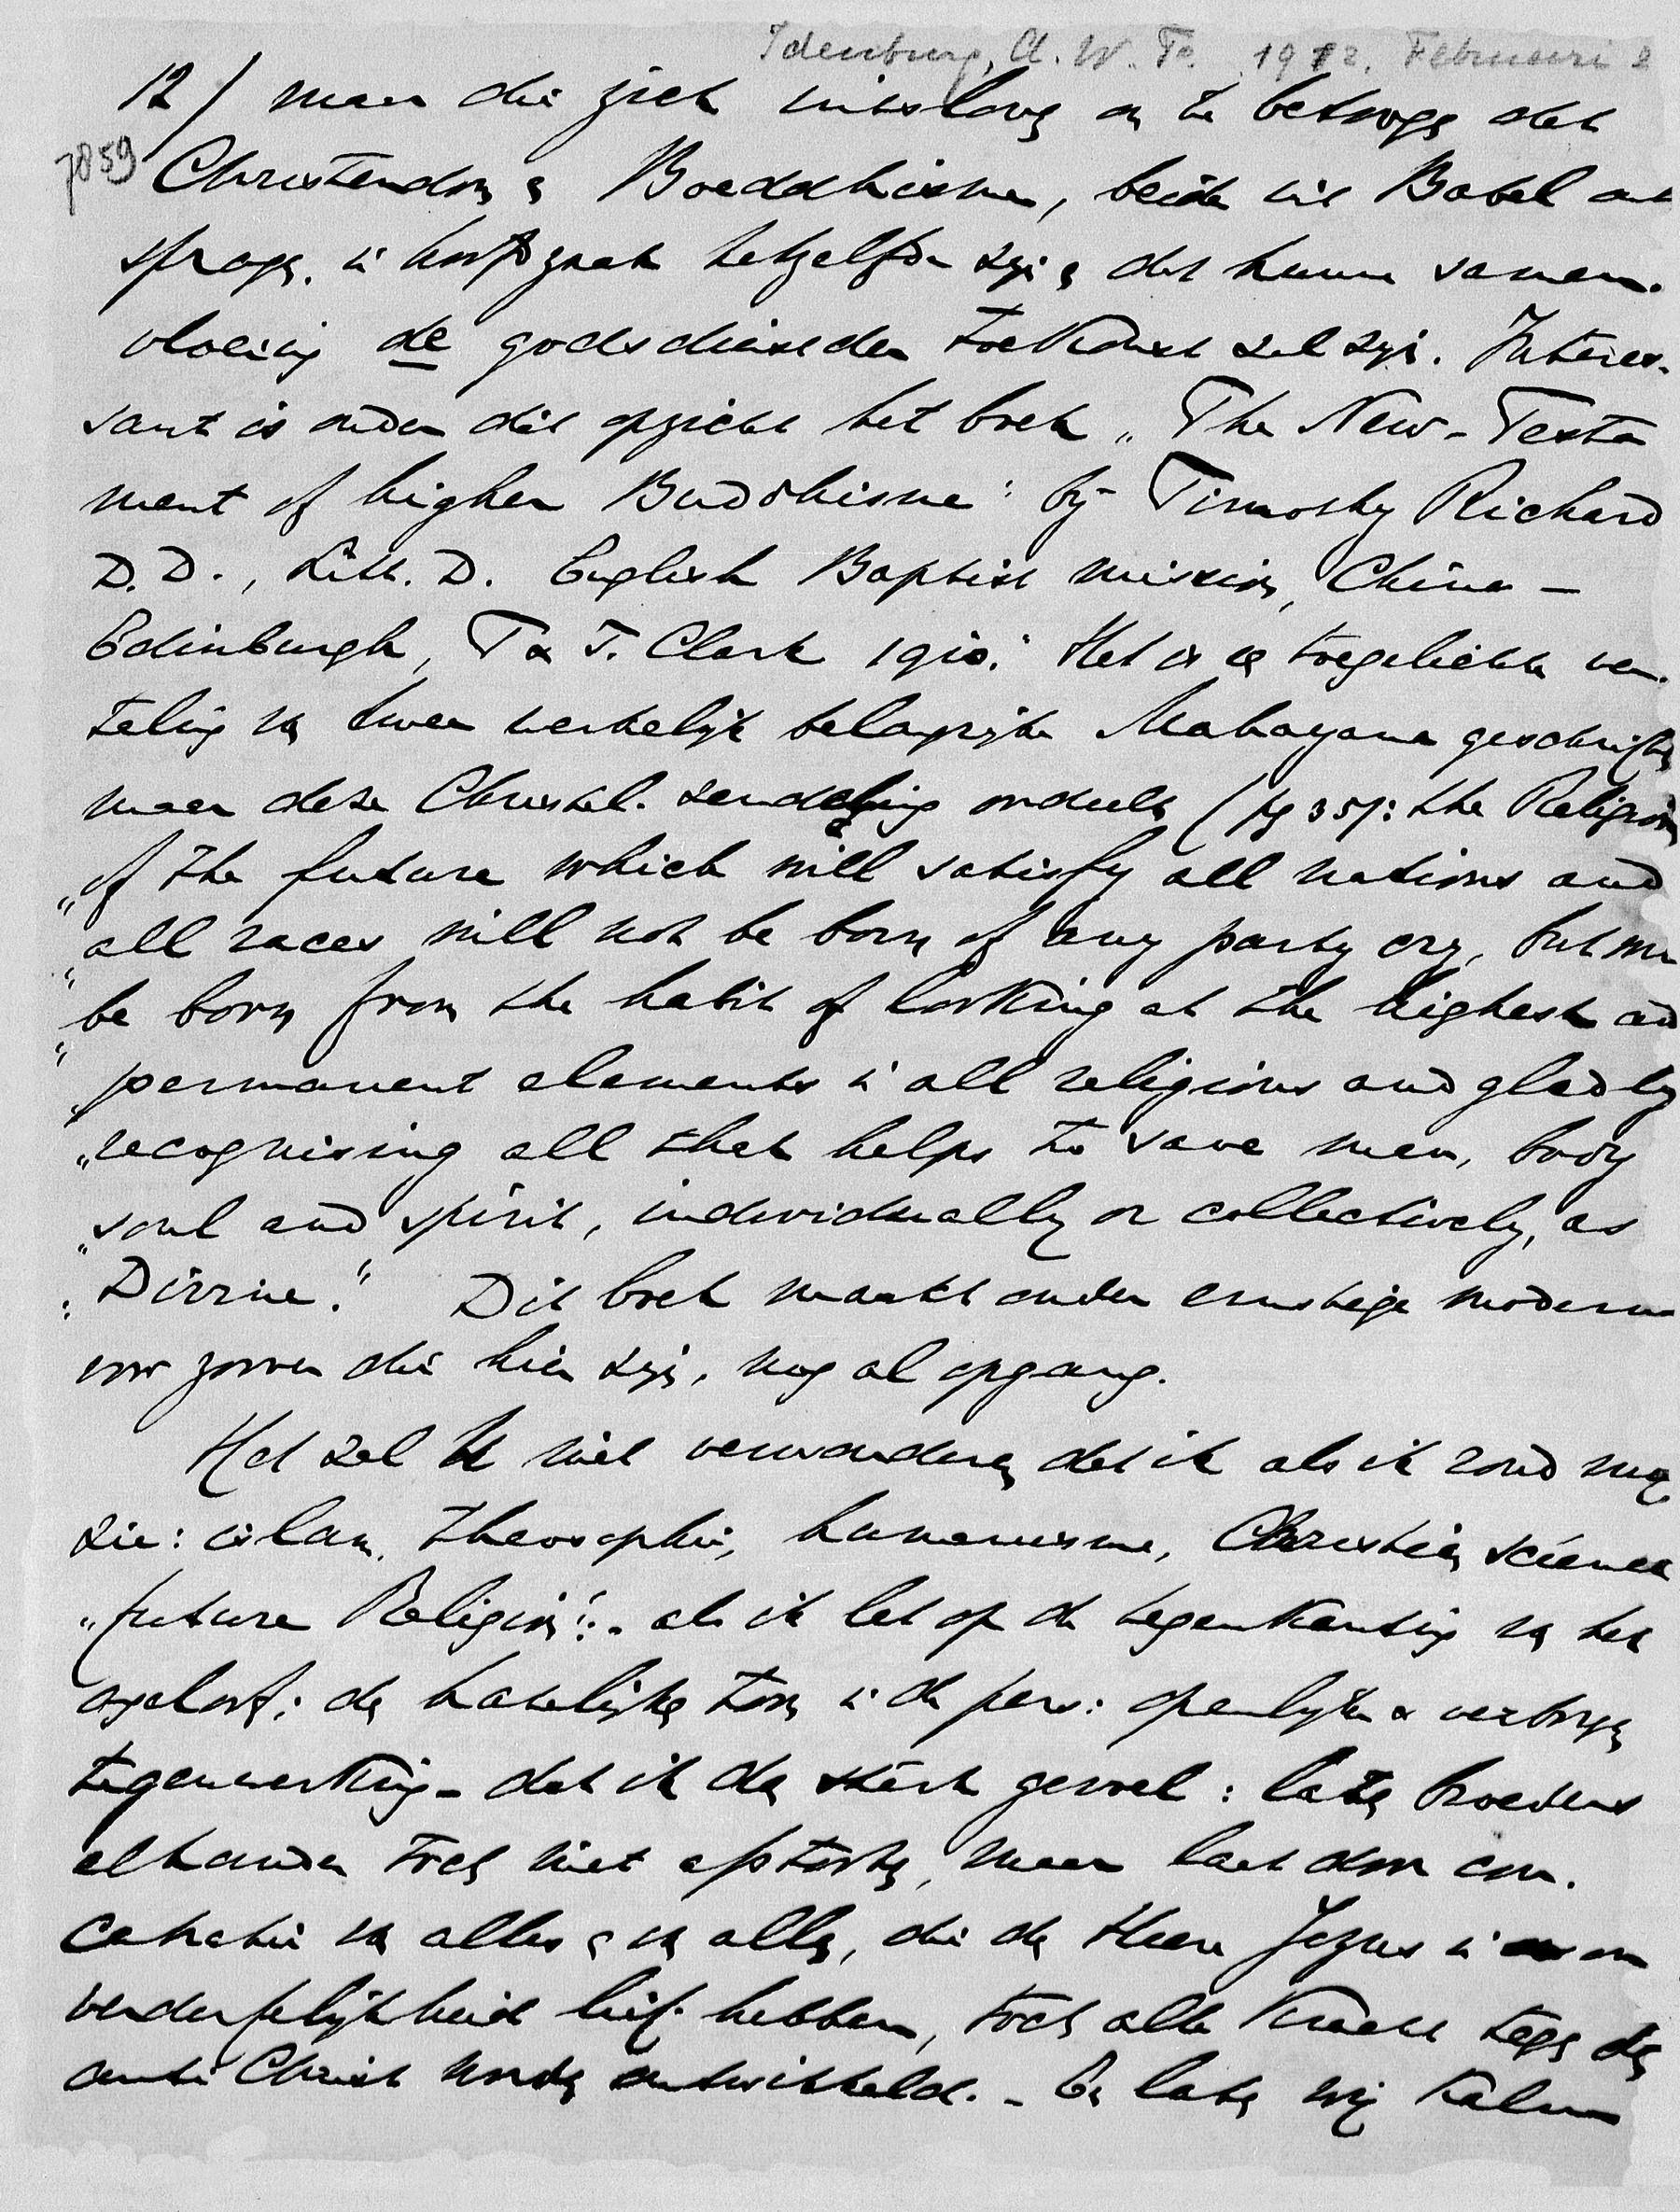 Idenburg, A. W. F. 1912. Februari 2
12/ man die zich uitsloofg om te betoogen dat
7859
Christendom en Boeddhisme, beide uit Babel ont
sproten, in hoofdzaak hetzelfde zijn en dat hunne samen-
vloeiing de godsdienst der toekomst zal zijn. Interes-
sant is onder dit opzicht het boek „The New-Testa
ment of higher Buddhisme" by Timothy Richard
D.D., Litt. D. English Baptist mission, China —
Edinburgh, T & T. Clark 1910." Het is een toegelichte ver-
taling van twee werkelijk belangrijke Mahayana geschriften
maar deze Christel. zendeling oordeelt (pg 35): the Religion
„of the future which will satisfy all nations and
„all races will not be born of any party cry, but
„be born from the habit of looking at the highest and
„permanent elements in all religions and gladly
„recognising all that helps to save men, body
„soul and spirit, individually or collectively, as
„Divine." Dit boek maakt onder ernstige moderne
voor zoover die hier zijn, nog al opgang.
Het zal U niet verwonderen dat ik als ik rond mij
zie: islam, theosophie, humanisme, Christian science
„future Religion": - als ik let op de tegenkanting van het
ongeloof; de hatelijke toon in de pers: openlijke & verborgen
tegenwerking - dat ik dan sterk gevoel: laten broeders
elkander toch niet afstooten, maar laat door con-
centratie van alles en van allen, die den Heere Jezus in on
verderfelijkheid lief hebben, toch alle kracht tegen den
anti Christ worden ontwikkeld. - En laten wij kalm